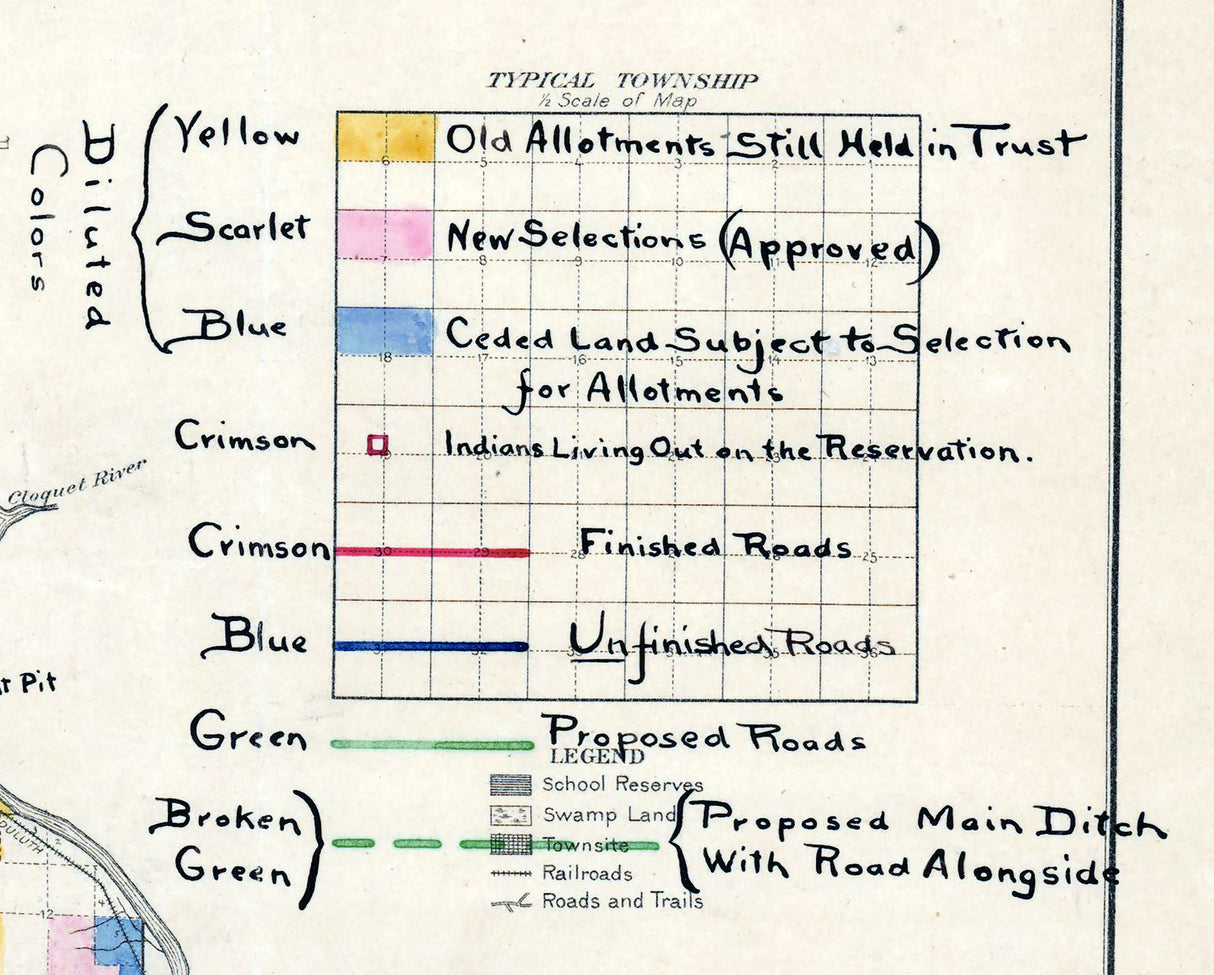 TYPICAL TOWNSHIP
½ Scale of Map
Diluted
Colors
Yellow Old Allotments Still Held in Trust
6 5 4 3 2 1
Scarlet New Selections (Approved)
7 8 9 10 11 12
Blue Ceded Land Subject to Selection
18 17 16 15 14 13
for Allotments
Crimson Indians Living Out on the Reservation.
19 20 22 23 24
Cloquet River
Crimson Finished Roads
30 29 28 25
Blue Unfinished Roads
31 32 33 35 36
Pit
Green Proposed Roads
LEGEND
School Reserves
Swamp Land
Broken
Green
Proposed Main Ditch
With Road Alongside
Townsite
Railroads
Roads and Trails
DULUTH
12